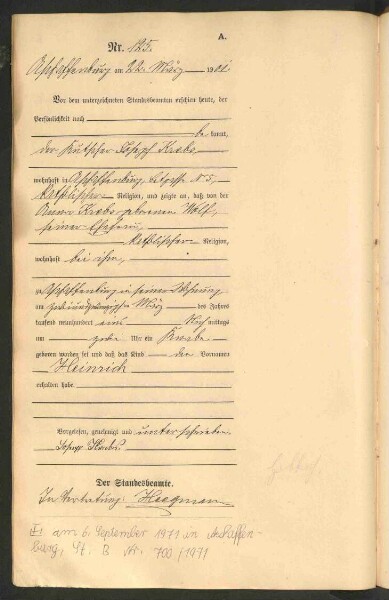 A.
Nr. 125.
Aschaffenburg am 22. März 1901
Vor dem unterzeichneten Standesbeamten erschien heute, der
Persönlichkeit nach
be kannt,
der Kutscher Joseph Krebs
wohnhaft in Aschaffenburg, N. 5,
katholischer Religion, und zeigte an, daß von der
Krebs geborenen Wolf,
seiner Ehefrau,
katholischer Religion,
wohnhaft bei ihm,
zu Aschaffenburg in seiner Wohnung
am März des Jahres
tausend neunhundert eins Nachmittags
um Uhr ein Knabe
geboren worden sei und daß das Kind den Vornamen
Heinrich
erhalten habe.
Vorgelesen, genehmigt und unterschrieben
Joseph Krebs.
Der Standesbeamte.
In Vertretung:
am 6. September 1971 in Aschaffen-
burg, St. B Nr. 700/1971